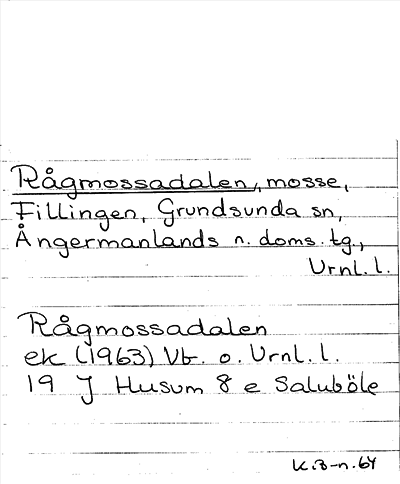 Rågmossadalen, mosse,
Fillingen, Grundsunda sn,
Ångermanlands n. doms. tg.,
Vrnl. l.
Rågmossadalen
ek (1963) Vb. o. Vrnl. l.
19 J Husum 8 e Saluböle
K.B-n. 64